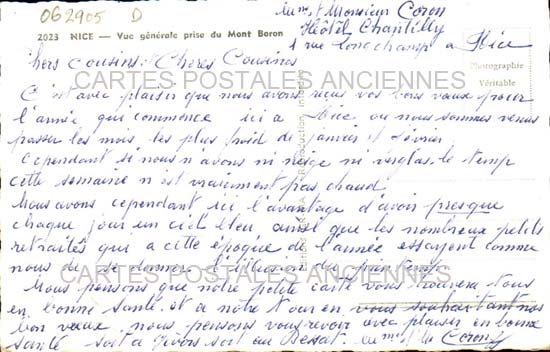 062905 D
Mme et Monsieur Coron
Hôtel Chantilly
1 rue Longchamp a Nice
2023 NICE — Vue générale prise du Mont Boron
Photographie
Véritable
Chers Cousins, Chères Cousines
CARTES POSTALES ANCIENNES
C'est avec plaisir que nous avons reçus vos bons vœux pour
l'année qui commence ici a Nice ou nous sommes venus
passer les mois les plus froid de janvier et février.
Cependant si nous n'avons ni neige ni verglas, le temp
cette semaine n'est vraiment pas chaud.
Nous avons cependant ici l'avantage d'avoir presque
chaque jour un ciel bleu, ainsi que les nombreux petits
retraités qui a cette époque de l'année essayent comme
nous de se donner l'illusion du printemps.
CARTES POSTALES ANCIENNES
Nous pensons que notre petite carte vous trouvera tous
en bonne santé et a notre tour en vous souhaitant nos
bon vœux, nous pensons vous revoir avec plaisir en bonne
santé soit a soit au Mme et Mr Coron